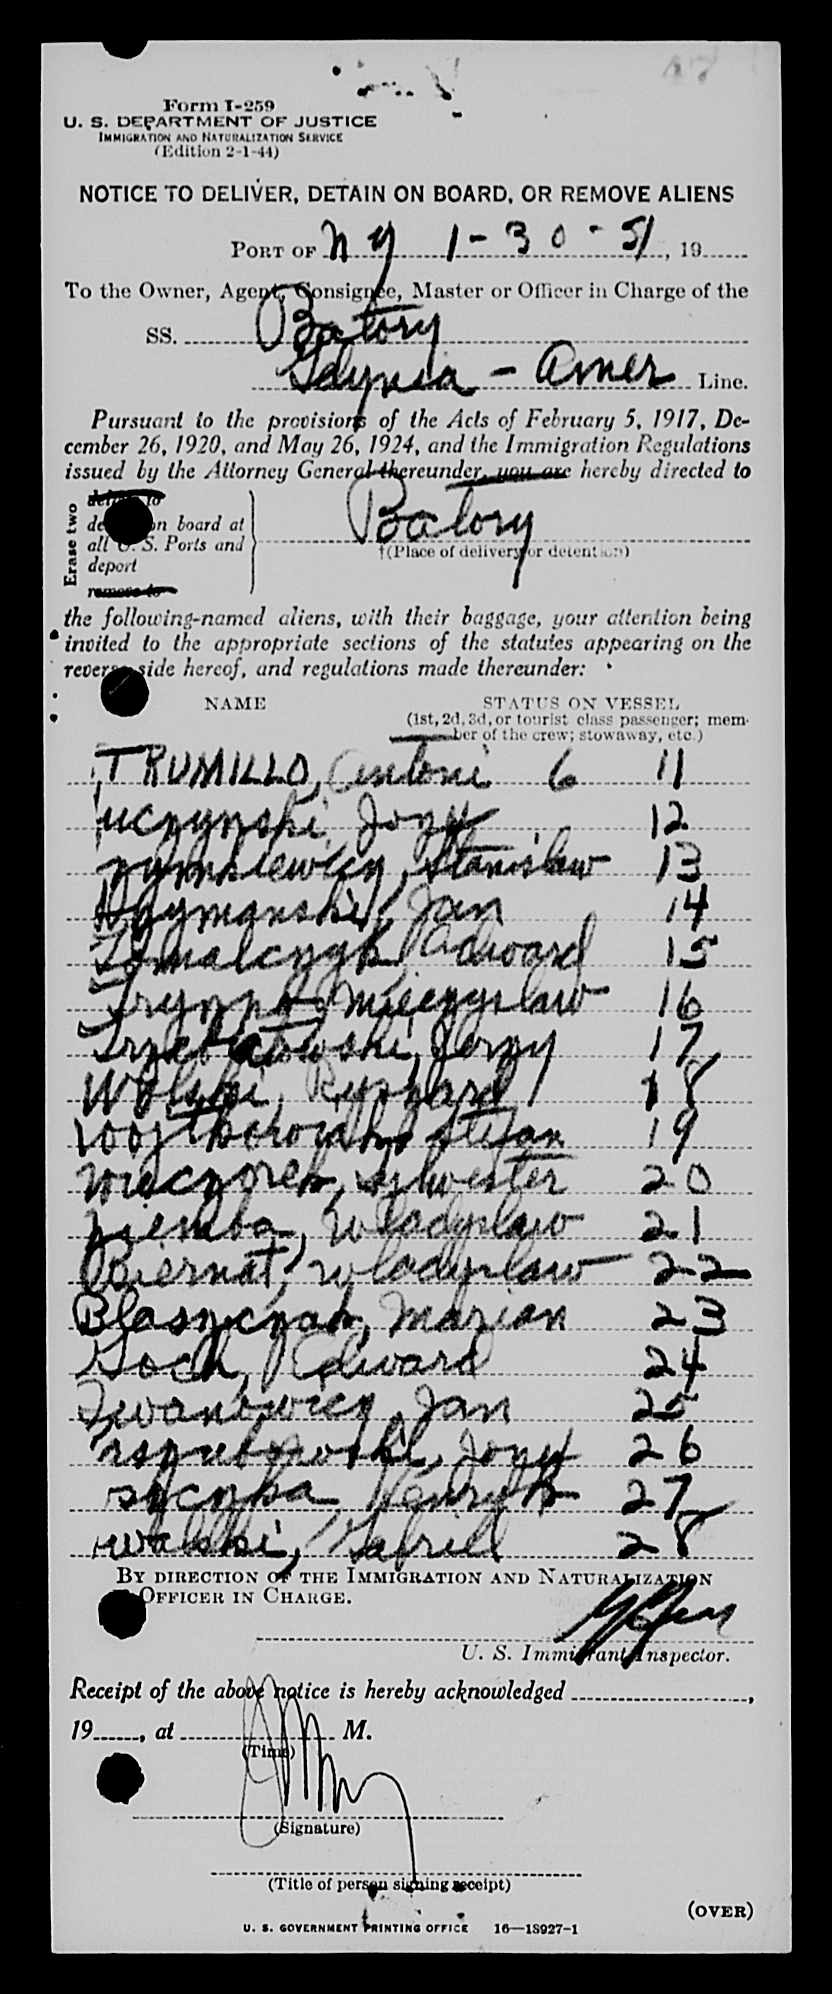 Form I-259
U. S. DEPARTMENT OF JUSTICE
IMMIGRATION AND NATURALIZATION SERVICE
(Edition 2-1-44)
NOTICE TO DELIVER, DETAIN ON BOARD, OR REMOVE ALIENS
PORT OF NY 1-30-51, 19
To the Owner, Agent, Consignee, Master or Officer in Charge of the
SS. Batory
Gdynia - Amer Line.
Pursuant to the provisions of the Acts of February 5, 1917, De-
cember 26, 1920, and May 26, 1924, and the Immigration Regulations
issued by the Attorney General thereunder, you are hereby directed to
Erase two
on board at
all U. S. Ports and
deport
remove to
Batory
†(Place of delivery or detention)
the following-named aliens, with their baggage, your attention being
invited to the appropriate sections of the statutes appearing on the
reverse side hereof, and regulations made thereunder:
NAME STATUS ON VESSEL
(1st, 2d, 3d, or tourist class passenger; mem-
ber of the crew; stowaway, etc.)
TRUMILLO, Antoni 6 11
uczynski, Jozef 12
rymkiewicz, Stanislaw 13
Jan 14
Tomalczyk Edward 15
Mieczyslaw 16
Jerzy 17
Wolski, Ryszard 18
Stefan 19
wieczorek, Sylwester 20
ziemba, Wladyslaw 21
Biernat, Wladyslaw 22
Blaszczak, Marian 23
Goch, Edward 24
Iwanowicz, Jan 25
Jozef 26
Henryk 27
Gabriel 28
BY DIRECTION OF THE IMMIGRATION AND NATURALIZATION
OFFICER IN CHARGE.
U. S. Immigrant Inspector.
Receipt of the above notice is hereby acknowledged ,
19 , at M.
(Time)
(Signature)
(Title of person signing receipt)
(OVER)
U. S. GOVERNMENT PRINTING OFFICE 16—18927-1